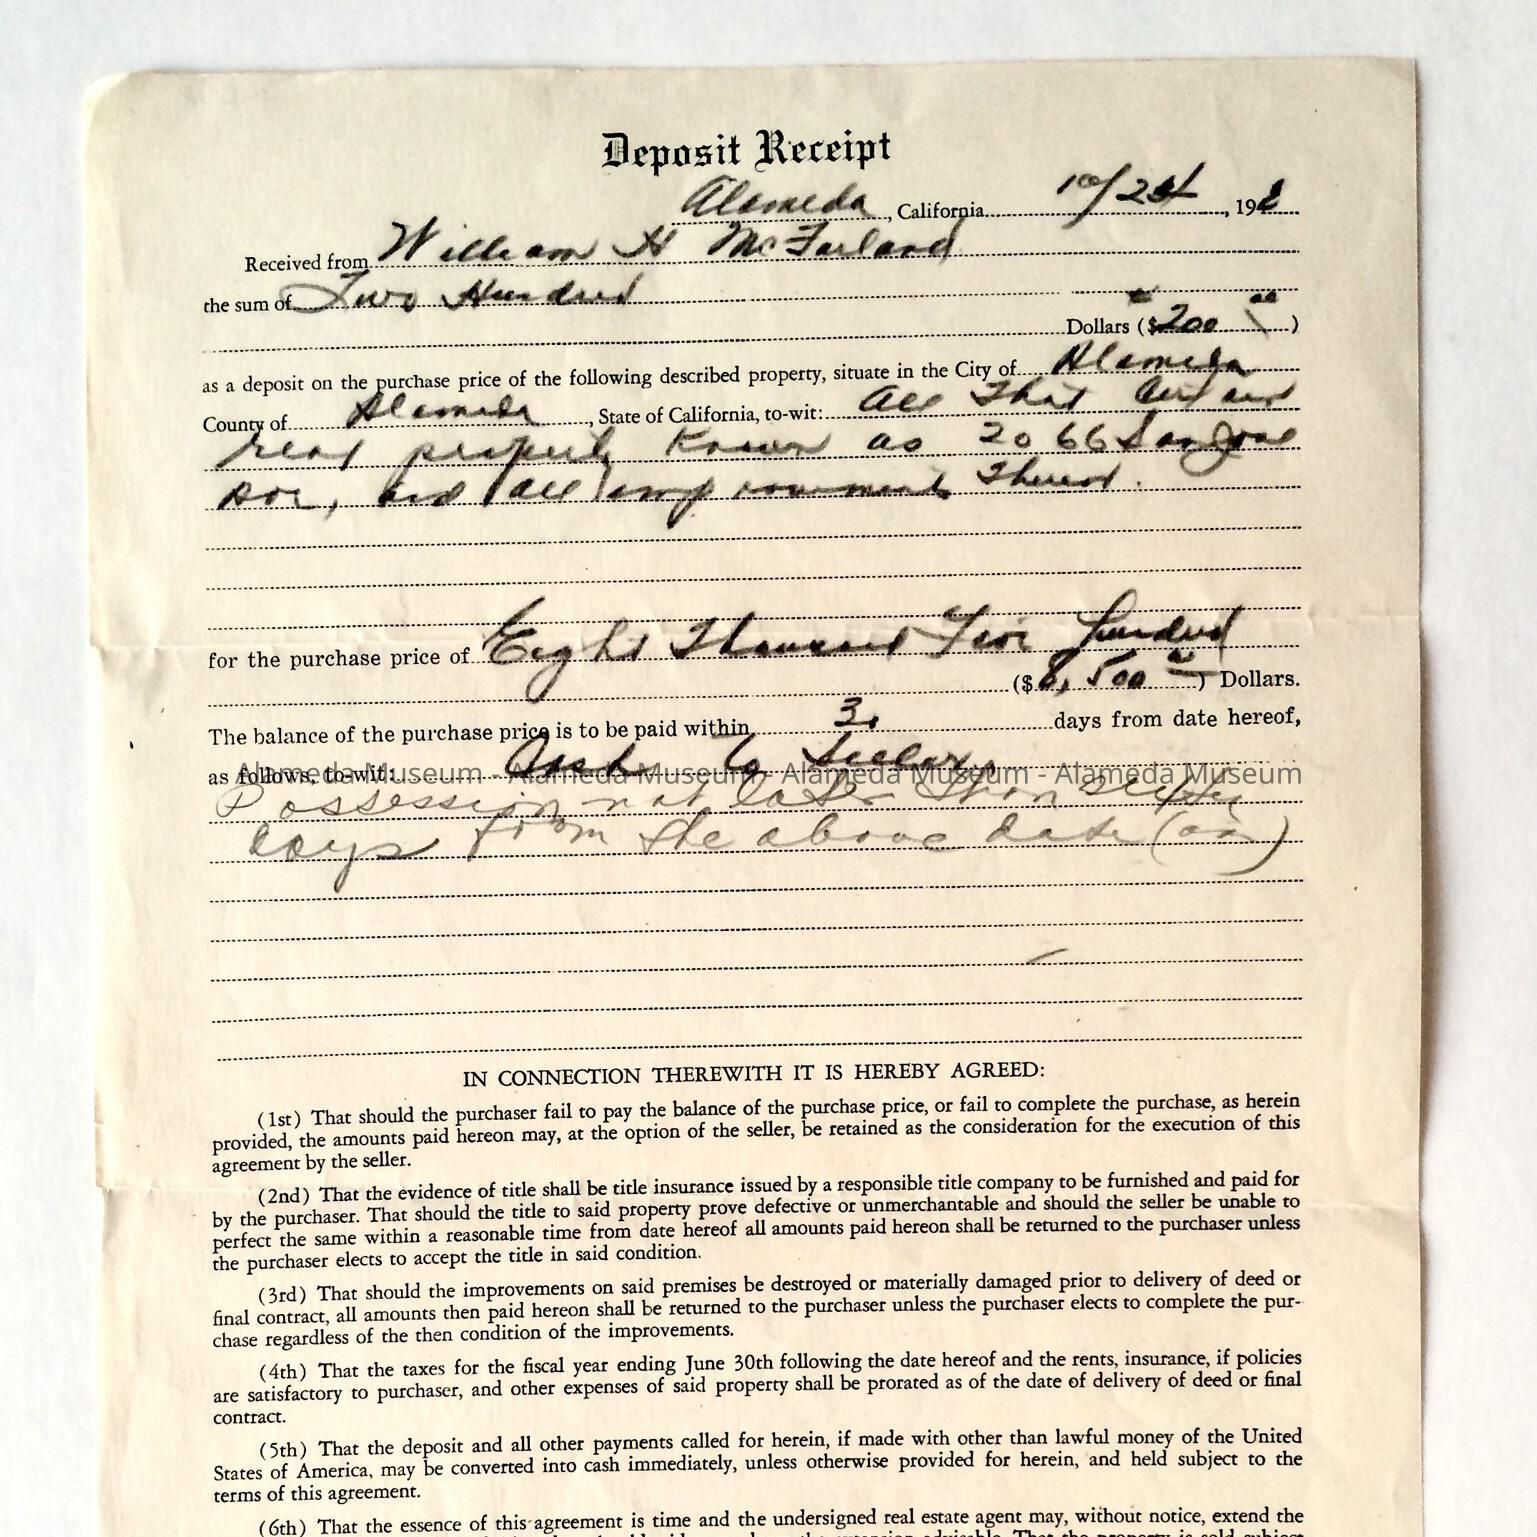 Deposit Receipt
Alameda, California 10/24, 19
Received from William H McFarland
the sum of Two Hundred
Dollars ($200 00)
as a deposit on the purchase price of the following described property, situate in the City of Alameda
County of Alameda, State of California, to-wit: All That certain
real property known as 2066 San Jose
Ave, and all improvements Thereon.
for the purchase price of Eight Thousand Five Hundred
($8,500 00) Dollars.
The balance of the purchase price is to be paid within 30 days from date hereof,
as follows, to-wit: Cash to Seller,
Alameda Museum - Alameda Museum - Alameda Museum - Alameda Museum
Possession not later than sixty
days from the above date
IN CONNECTION THEREWITH IT IS HEREBY AGREED:
(1st) That should the purchaser fail to pay the balance of the purchase price, or fail to complete the purchase, as herein
provided, the amounts paid hereon may, at the option of the seller, be retained as the consideration for the execution of this
agreement by the seller.
(2nd) That the evidence of title shall be title insurance issued by a responsible title company to be furnished and paid for
by the purchaser. That should the title to said property prove defective or unmerchantable and should the seller be unable to
perfect the same within a reasonable time from date hereof all amounts paid hereon shall be returned to the purchaser unless
the purchaser elects to accept the title in said condition.
(3rd) That should the improvements on said premises be destroyed or materially damaged prior to delivery of deed or
final contract, all amounts then paid hereon shall be returned to the purchaser unless the purchaser elects to complete the pur-
chase regardless of the then condition of the improvements.
(4th) That the taxes for the fiscal year ending June 30th following the date hereof and the rents, insurance, if policies
are satisfactory to purchaser, and other expenses of said property shall be prorated as of the date of delivery of deed or final
contract.
(5th) That the deposit and all other payments called for herein, if made with other than lawful money of the United
States of America, may be converted into cash immediately, unless otherwise provided for herein, and held subject to the
terms of this agreement.
(6th) That the essence of this agreement is time and the undersigned real estate agent may, without notice, extend the